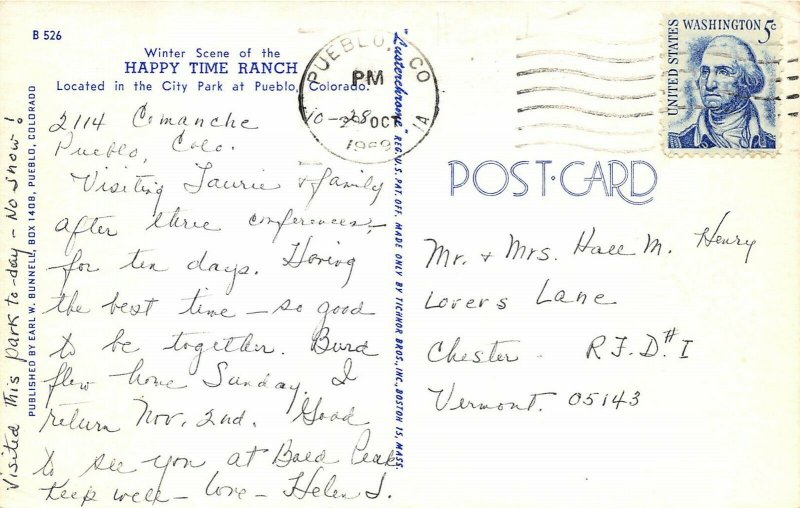 B 526
Winter Scene of the
HAPPY TIME RANCH
Located in the City Park at Pueblo, Colorado.
10-28
2114 Comanche
Pueblo, Colo.
Visiting Laurie & family
after three conferences,
for ten days. Having
the best time — so good
to be together.
flew home Sunday. I
return Nov. 2nd. Good
to see you at Bald Peak
Keep well — love — Helen J.
Visited this park to-day — No snow!
PUBLISHED BY EARL W. BUNNELL, BOX 1408, PUEBLO, COLORADO
"Lusterchrome" REG. U.S. PAT. OFF. MADE ONLY BY TICHNOR BROS., INC., BOSTON 15, MASS.
PUEBLO, CO
PM
OCT
1969
1A
UNITED STATES
WASHINGTON 5c
POST-CARD
Mr. + Mrs. Hall M. Henry
Lovers Lane
Chester R.F.D. #1
Vermont. 05143